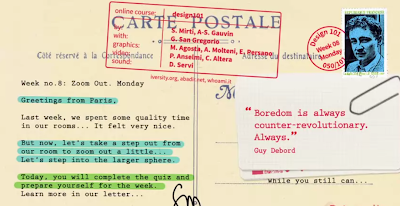 online course: design101
by: S. Mirti, A-S. Gauvin
with: G. San Gregorio
graphics: M. Agosta, A. Molteni, E. Persano
video: P. Anselmi, C. Altera
sound: D. Servi
iversity.org, abadir.net, whoami.it
CARTE POSTALE
Côté réservé à la Correspondance
Adresse du destinataire
Design 101
Week 08
Monday
050/101
Week no.8: Zoom Out. Monday
Greetings from Paris,
Last week, we spent some quality time
in our rooms... It felt very nice.
But now, let's take a step out from
our room to zoom out a little...
Let's step into the larger sphere.
Today, you will complete the quiz and
prepare yourself for the week.
Learn more in our letter...
"Boredom is always
counter-revolutionary.
Always."
Guy Debord
while you still can...